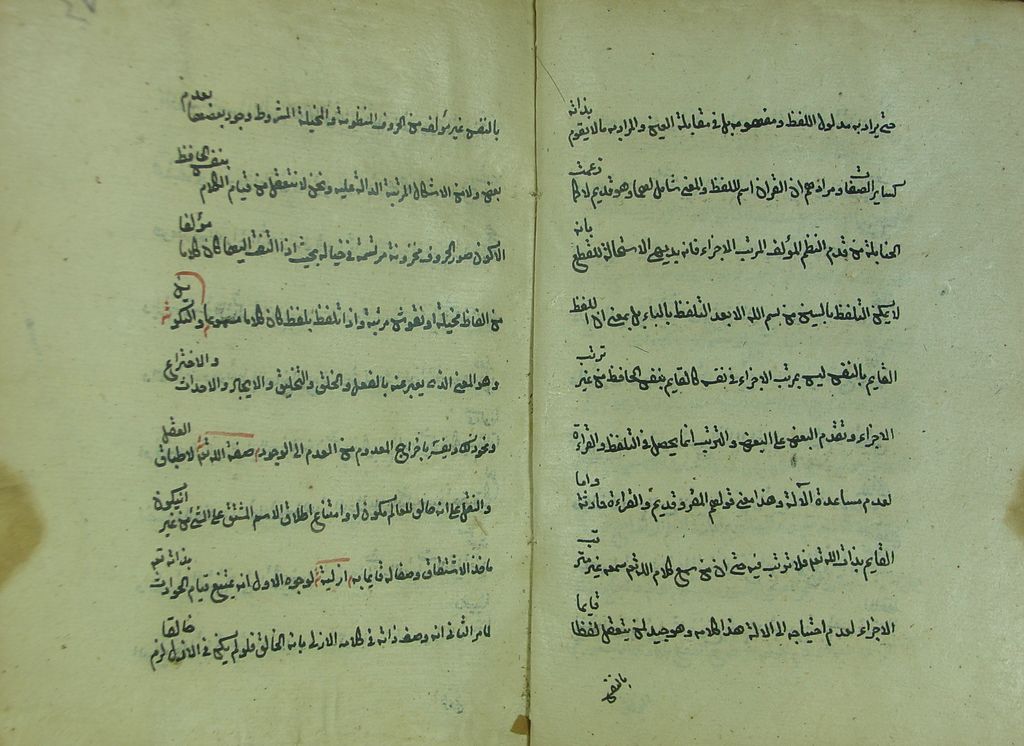 حتى يراد به مدلول اللفظ ومفهومه بل في مقابلة العين والمراد به ما لا يقوم بذاته
كسائر الصفات ومرادهم ان القران اسم للفظ والمعنى شامل لهما وهو قديم لا كما زعمت
الحنابلة من قدم النظم المؤلف المرتب الاجزاء فانه بديهي الاستحالة للقطع بانه
لا يمكن التلفظ بالسين من بسم الله الا بعد التلفظ بالباء بل بمعنى ان اللفظ
القايم بالنفس ليس بمرتب الاجزاء في نفسه كالقايم بنفس الحافظ من غير ترتب
الاجزاء وتقدم البعض على البعض والترتب انما يحصل في التلفظ والقراءة
لعدم مساعدة الآلة وهذا معنى قولهم المقرو قديم والقراءة حادثة واما
القايم بذات الله تعم فلا ترتب فيه حتى ان من سمع كلام الله تعم سمعه غير مترتب
الاجزاء لعدم احتياجه الى الالة هذا كلامه وهو جيد لمن يتعقل لفظا قايما
بالنفس
بالنفس غير مؤلف من الحروف المنظومة والمخيلة المشروط وجود بعضها بعدم
بعض ولا من الاشكال المرتبة الدالة عليه ونحن لا نتعقل من قيام الكلام بنفس الحافظ
الا كون صور الحروف مخزونة مرتسمة في خياله بحيث اذا التفت اليها كان كلاما مؤلفا
من الفاظ مخيلة او نقوش مرتبة واذا تلفظ بلفظ كان كلاما مسموعا والتكوين
وهو المعنى الذي يعبر عنه بالفعل والخلق والتخليق والايجاد والاحداث والاختراع
ونحو ذلك ويفسر باخراج المعدوم من العدم الى الوجود صفة الله تعم لاطباق العقل
والنقل على انه خالق للعالم مكون له وامتناع اطلاق الاسم المشتق على الشئ من غير ان يكون
ماخذ الاشتقاق وصفا له قايما به ازلية لوجوه الاول انه يمتنع قيام الحوادث بذاته تعم
لما مر الثاني انه وصف ذاته في كلامه الازلي بانه الخالق فلو لم يكن في الازل خالقا لزم